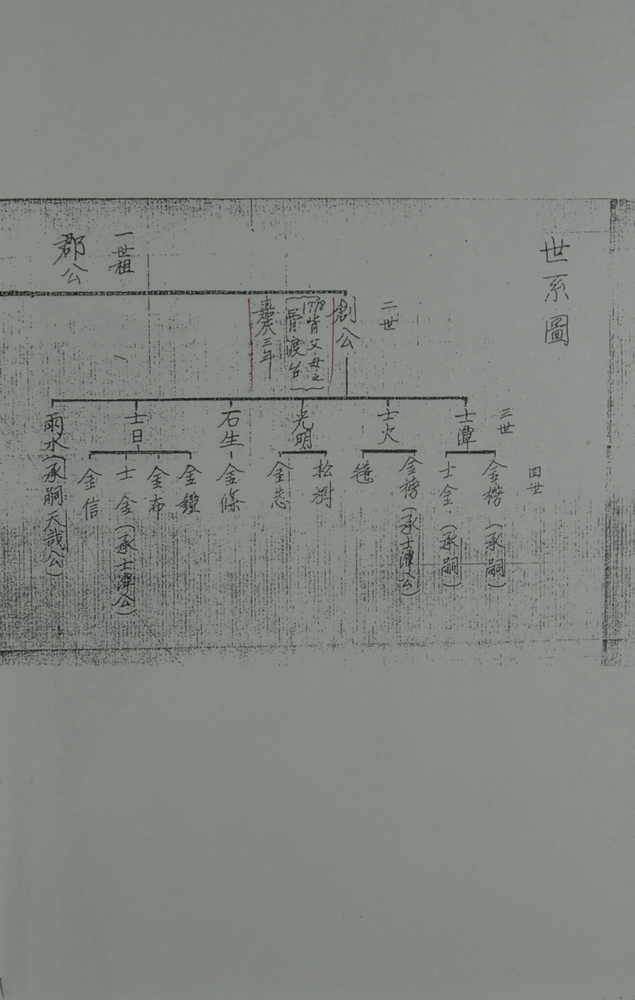 世系圖
一世祖
郡公
二世
創公
(1798背父母之骨渡台)
嘉慶三年
三世
士潭
士火
光明
石生
士日
雨水(承嗣天哉公)
四世
金榜(承嗣)
士金(承嗣)
金榜(承士潭公)
松樹
金忠
金條
金鐘
金布
士金(承士潭公)
金信